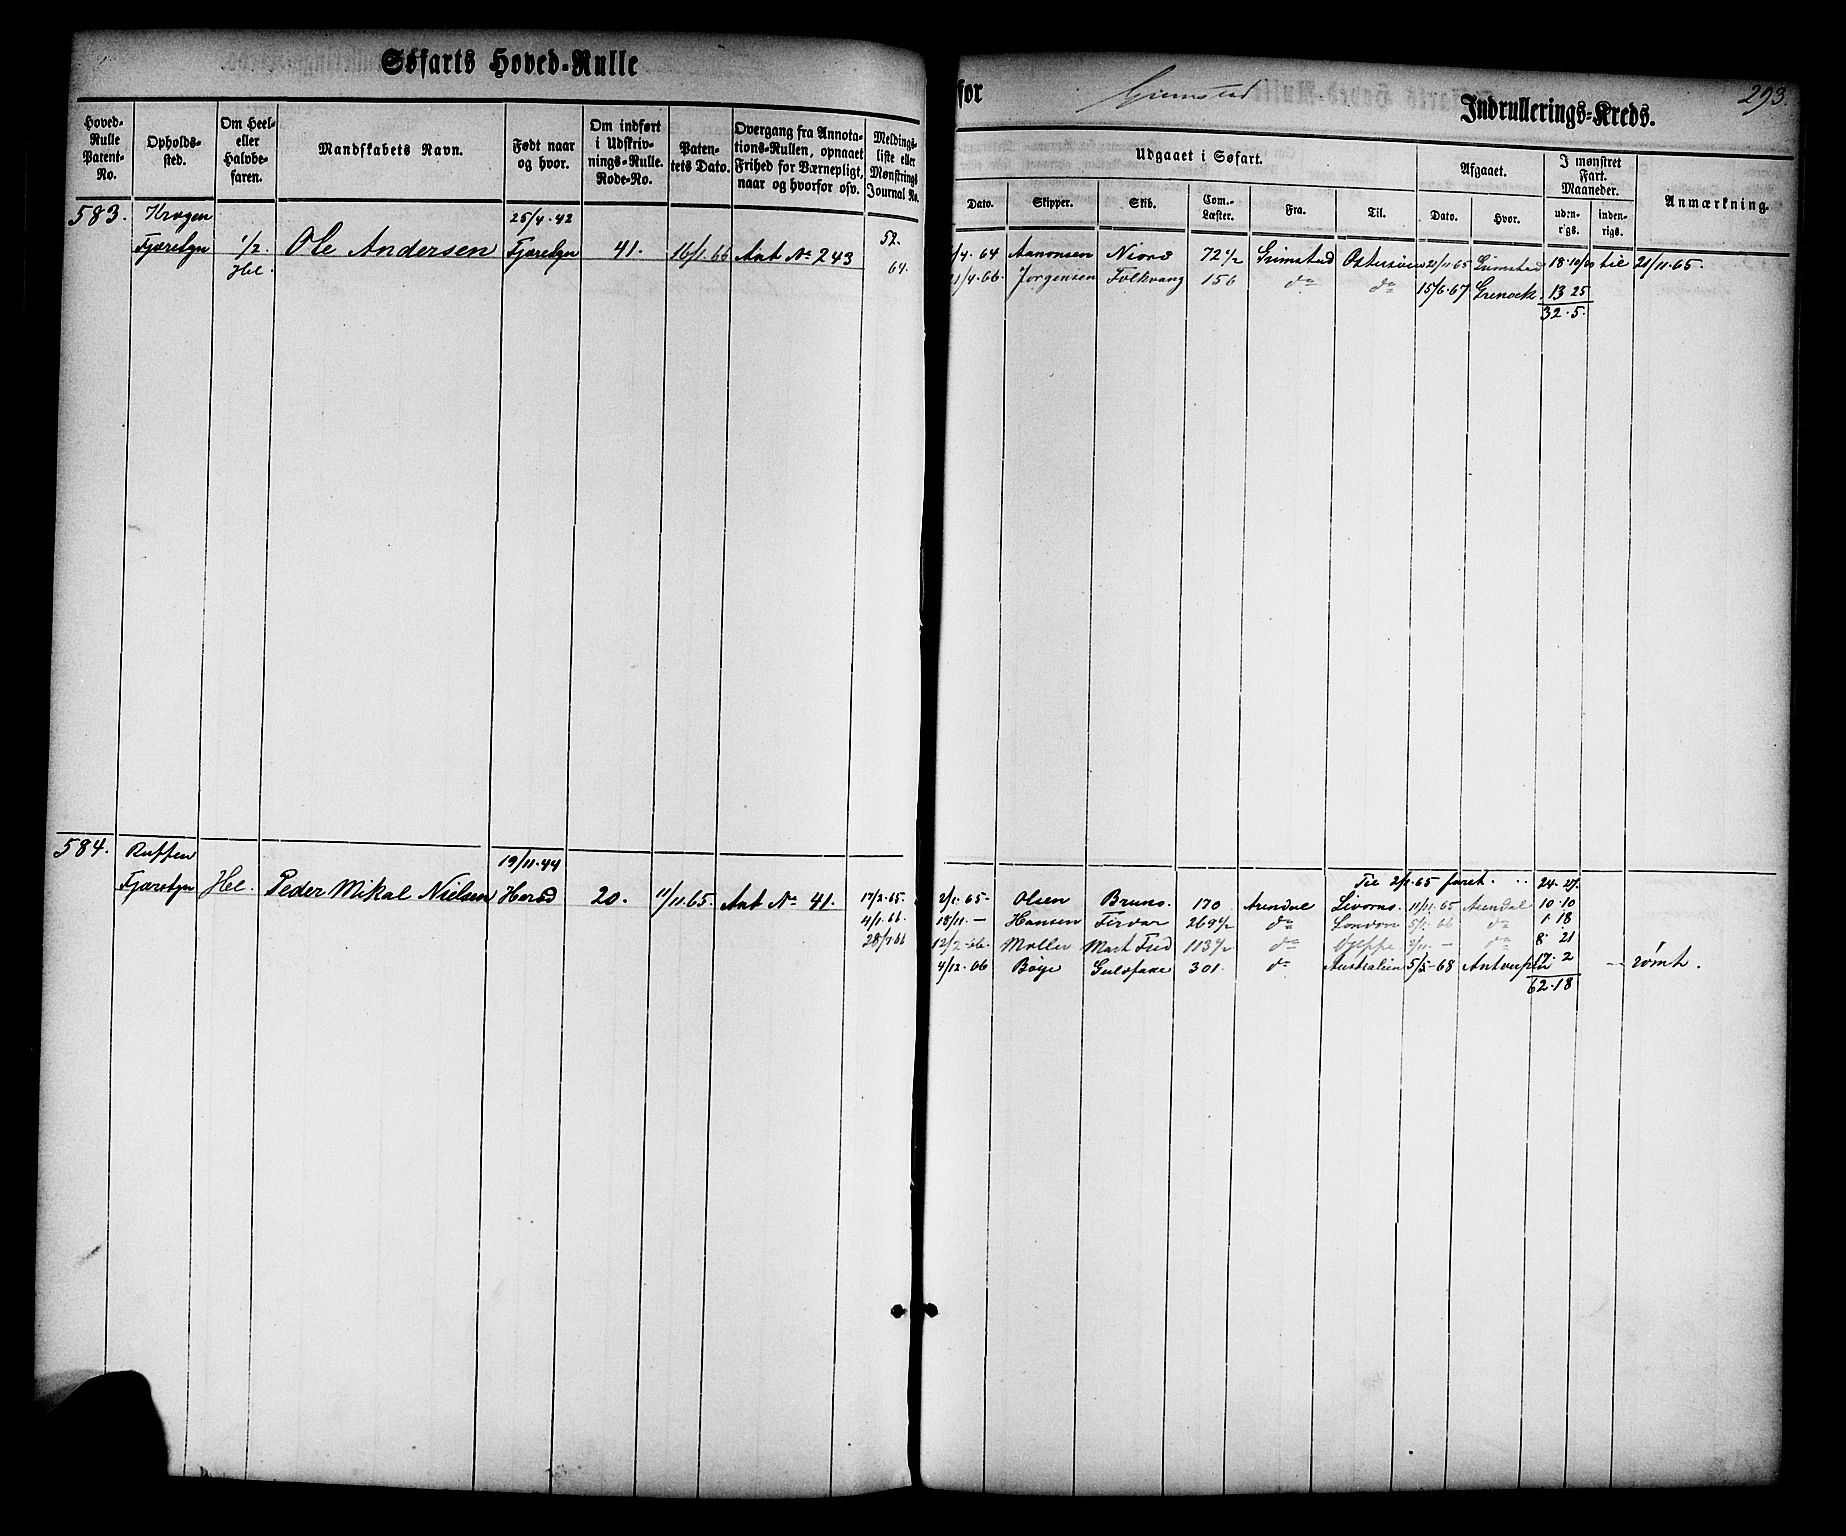 Søfarts Hoved-Rulle
for Grimstad Indrullerings-Kreds.
293.
Hoved-Rulle Patent-No.
Opholds-sted.
Om Heel- eller Halvbe-faren.
Mandskabets Navn.
Født naar og hvor.
Om indført i Udskriv-nings-Rulle. Rode-No.
Paten-tets Dato.
Overgang fra Annota-tions-Rullen, opnaaet Frihed for Værnepligt, naar og hvorfor osv.
Meldings-liste eller Mønstrings Journal No.
Udgaaet i Søfart.
Afgaaet.
I mønstret Fart. Maaneder.
Anmærkning.
Dato. Skipper. Skib. Com. Læster. Fra. Til. Dato. Hvor. uden-rigs. inden-rigs.
583. Krogen 25/4. 42 52.
Fjæresgn 1/2 Ole Andersen Fjæresgn 41. 16/1. 66 Ant No 243 64.
Hel.
/4 64 Aanonsen Niord 72 1/2 Grimstad Østersøen 21/11 65 Grimstad 18. 10/ til 21/11. 65.
/4. 66. Jørgensen Folkvang 156 do do 15/6. 67 Grenock. 13 25
32. 5.
584. Ruffen 19/11. 44
Fjæresgn Hel. Peder Mikal Nielsen Herød 20. 11/11. 65. Ant No 41. 17/2. 65.
4/1. 66.
28/ 66
Til 2/1. 65 faret. 24. 27.
2/1. 65- Olsen Bruno. 170 Arendal Livorno. 11/11. 65 Arendal 10. 10
18/11 — Hansen Firdar 269 1/2 do London 5/1. 66 do 1. 18
12/2. 66. Møller Mart Fred 113 1/2 do /11. — do 8. 21
4/12. 66 Bøye Guldfaxe 301. do Australien 5/5-68 Antverpen 17. 2 — rømt.
62. 18